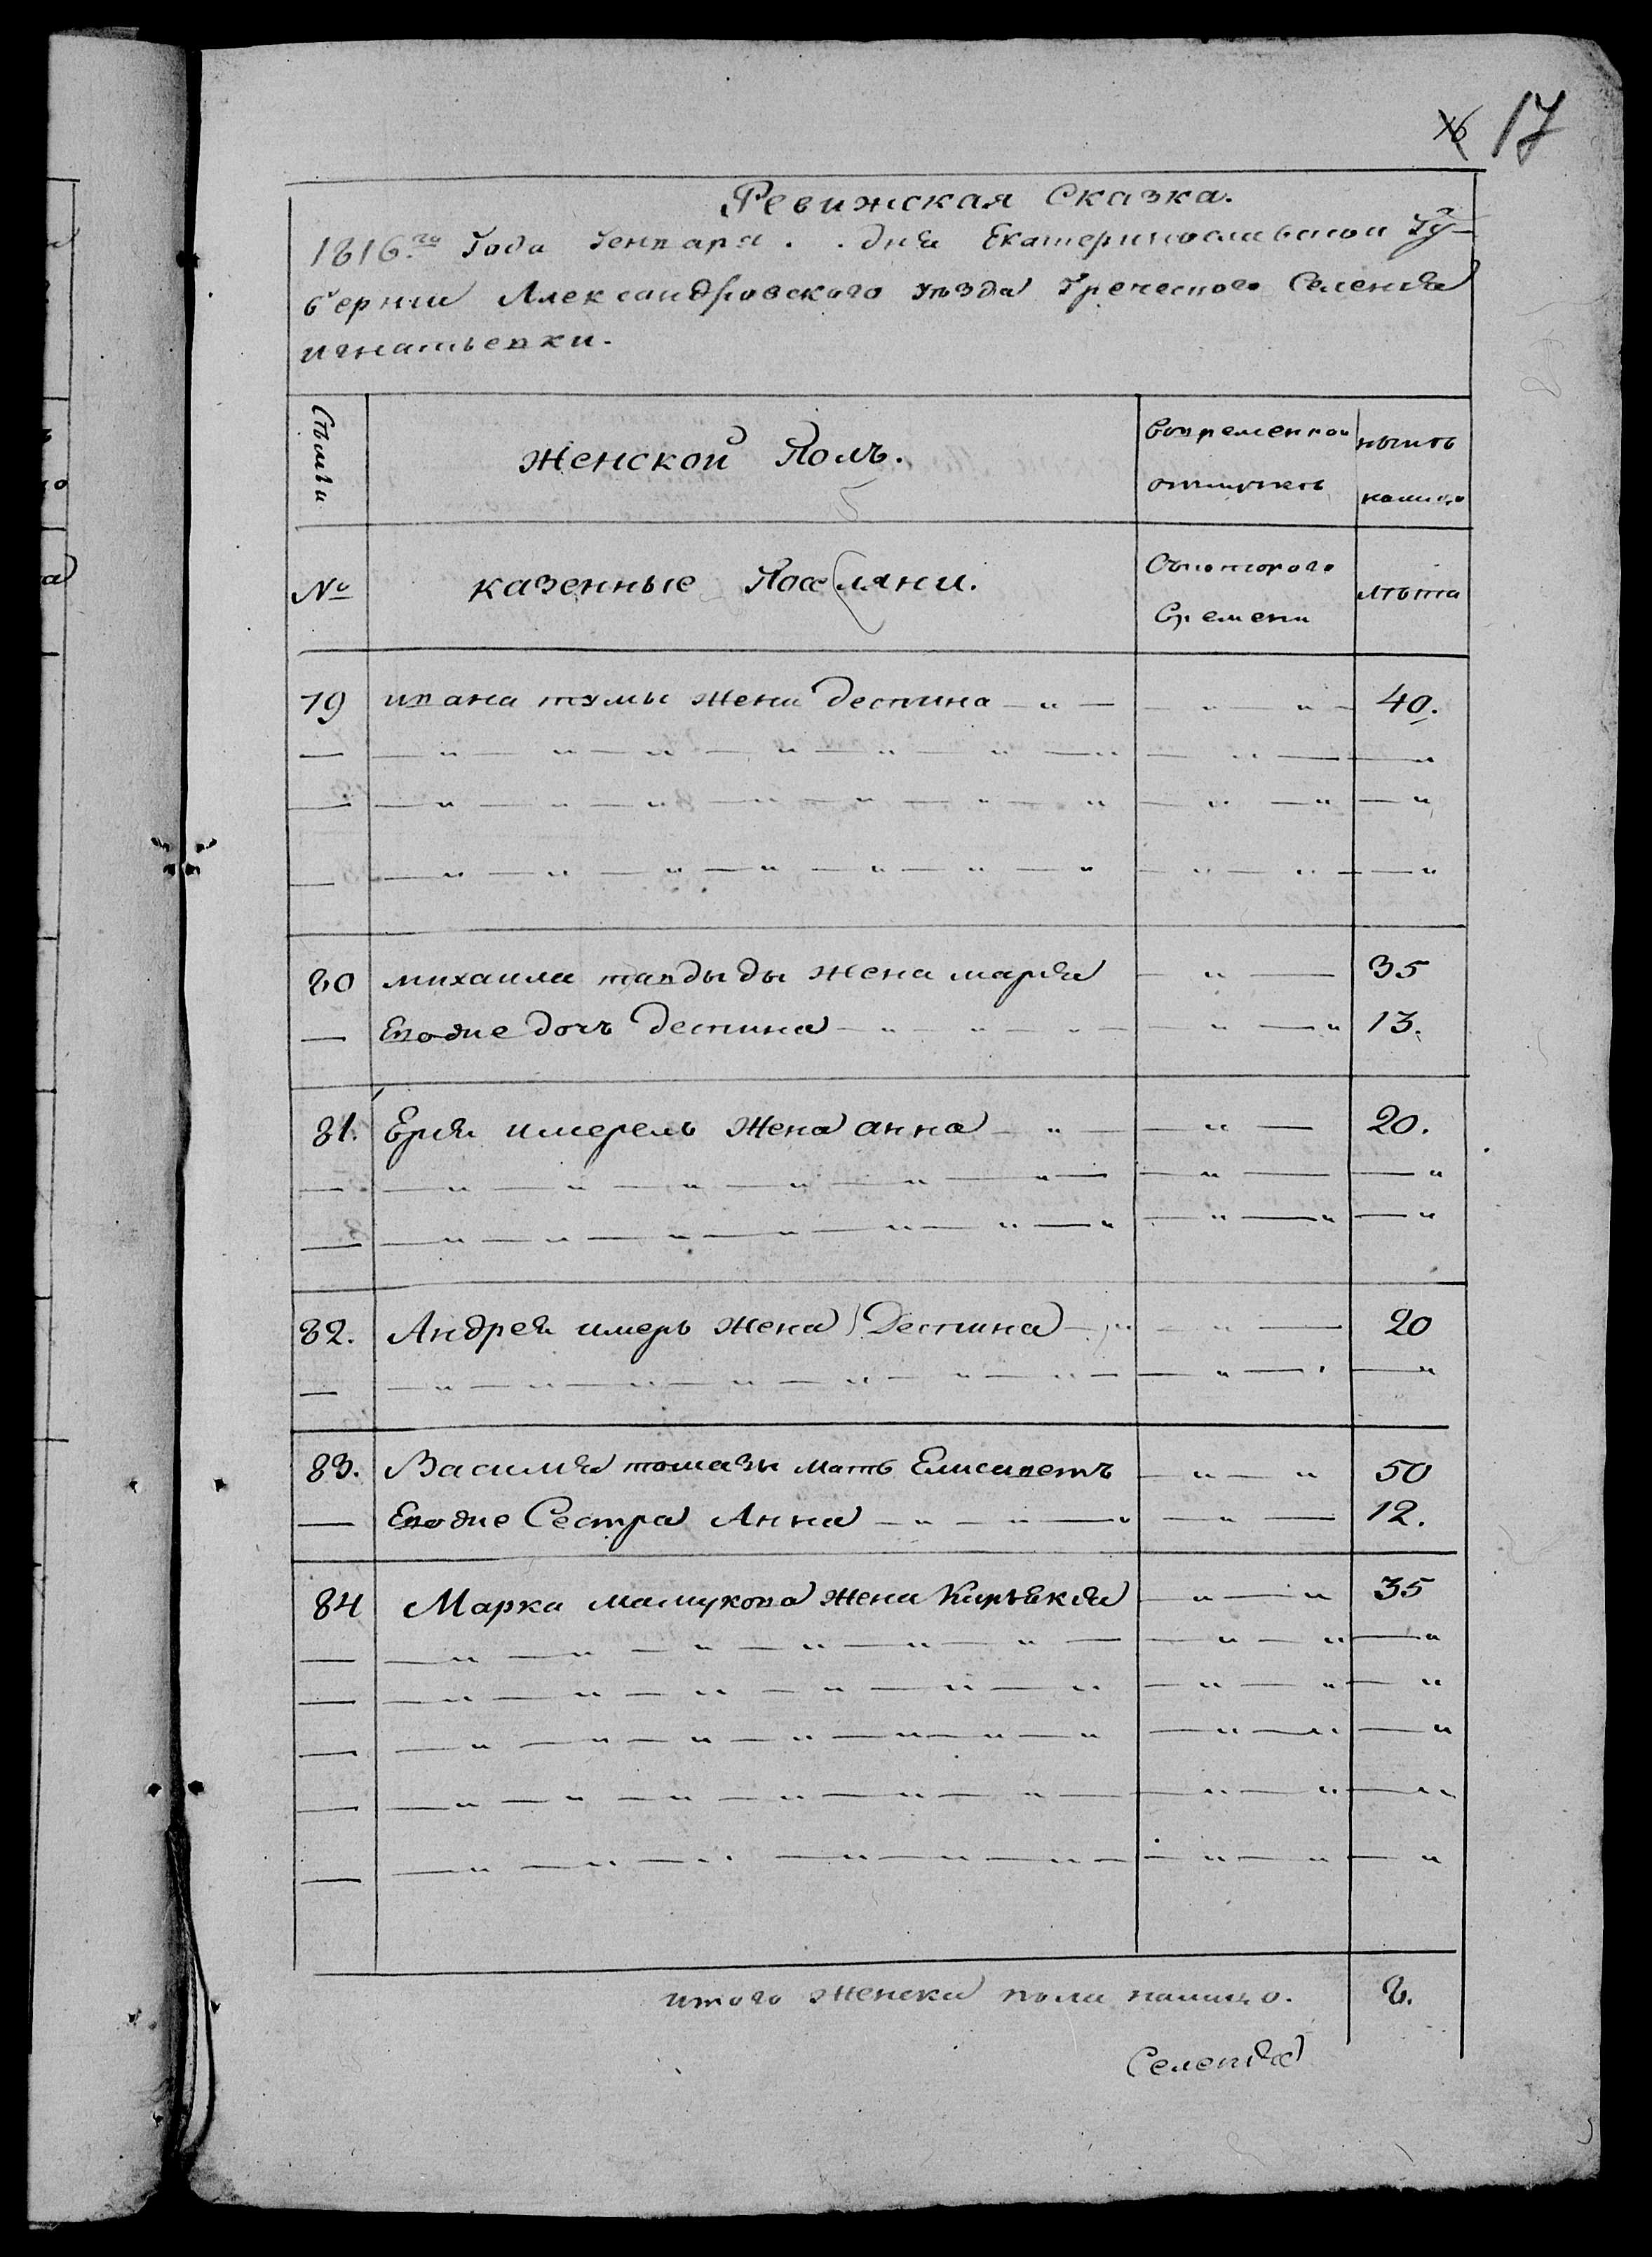 16 17
Ревижская Сказка.
1816.го Года Генваря . . дня Екатеринославской Гу-
бернии Александровского уезда Греческого Селения
игнатьевки.
Семьи
женской Полъ.
вовременной
отлучке
ныне
налицо
№
казенные Поселяни.
Скоторого
Времени
лета
79 ивана тумы жена деспина — „ — — „ — „ — 40.
80 михаила тавдыды жена мария — „ — 35
Еводие дочь деспина — „ — „ — „ — „ — „ 13.
81. Ерия имерель жена анна — „ — — „ — 20.
82. Андрея имерь жена Деспина — „ — „ — 20
83. Василия томазы мать Елисаветъ — „ — „ 50
Еводие Сестра Анна — „ — „ — „ — „ — 12.
84 Марка мамукова жена Кирьякия — „ — „ 35
итого женска пола налицо. 8.
Селения